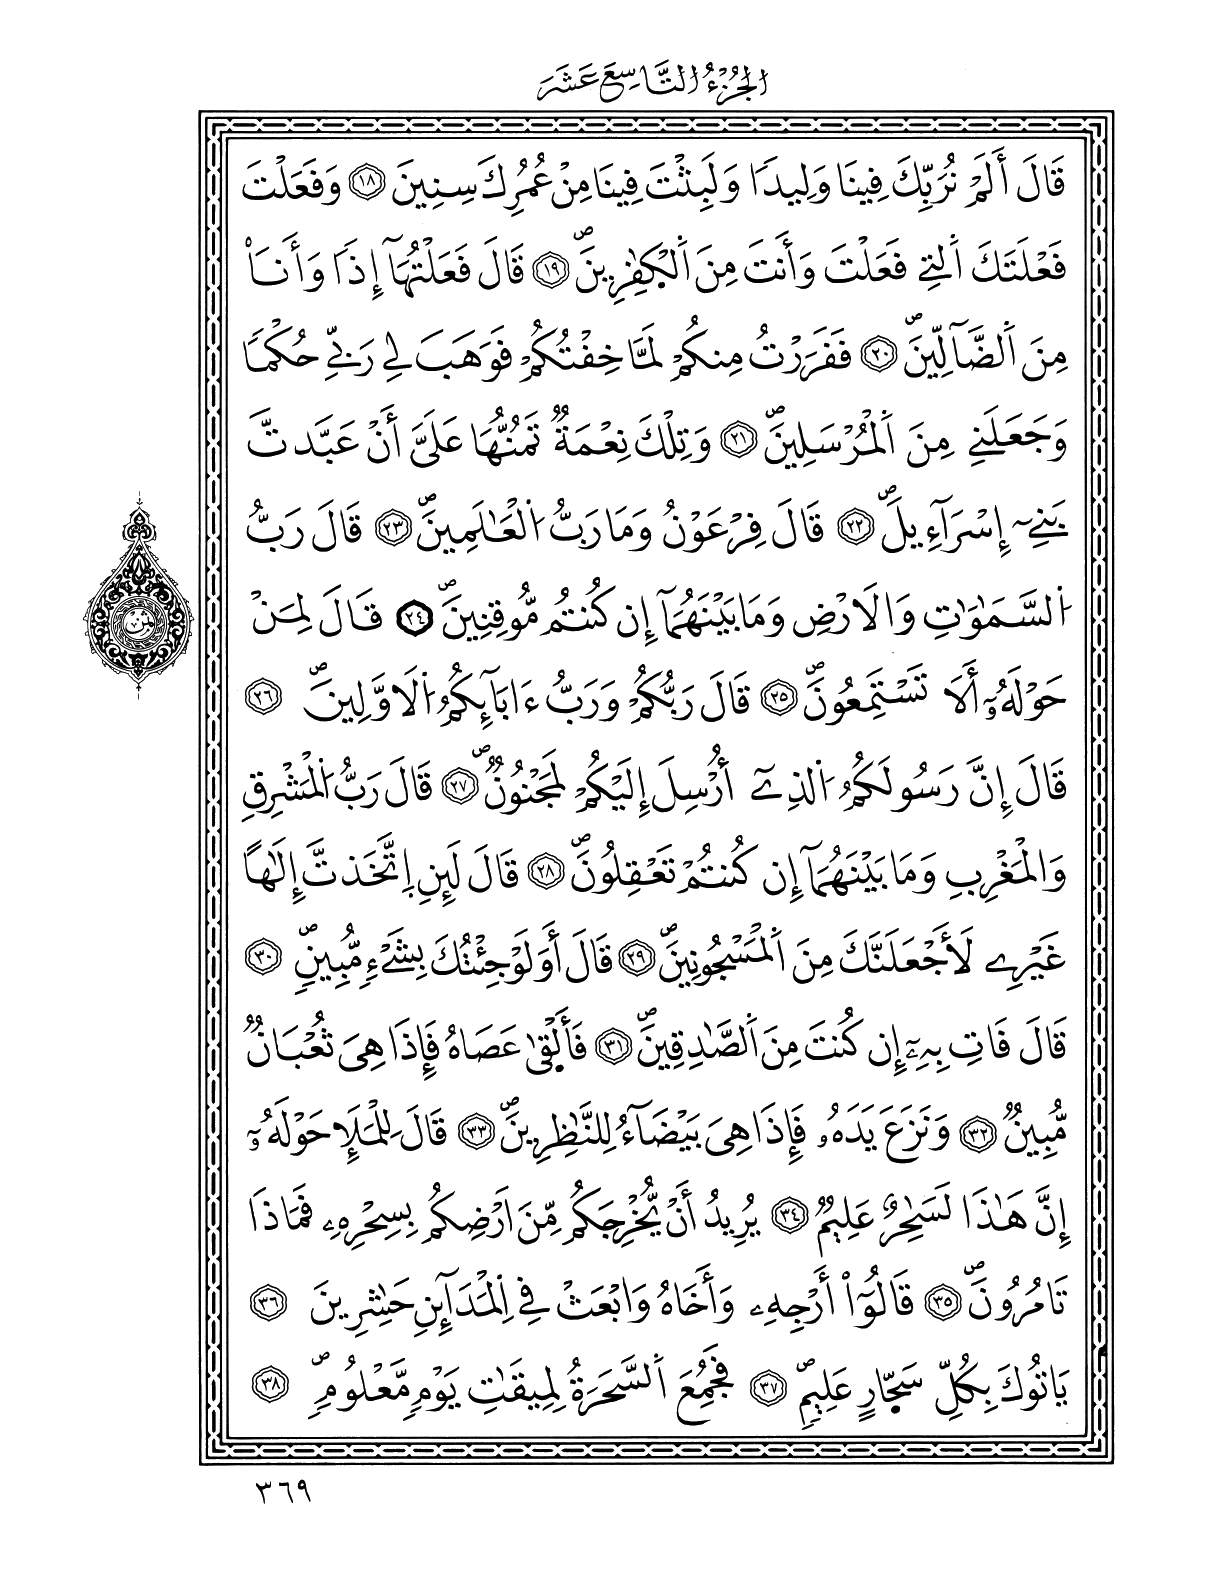 الجُزْءُ التَّاسِعَ عَشَرَ
قَالَ أَلَمْ نُرَبِّكَ فِينَا وَلِيدًا وَلَبِثْتَ فِينَا مِنْ عُمُرِكَ سِنِينَ ١٨ وَفَعَلْتَ
فَعْلَتَكَ اَ۬لتِے فَعَلْتَ وَأَنتَ مِنَ اَ۬لْكٰ۪فِرِينَۖ ١٩ قَالَ فَعَلْتُهَآ إِذاٗ وَأَنَا۠
مِنَ اَ۬لضَّآلِّينَۖ ٢٠ فَفَرَرْتُ مِنكُمْ لَمَّا خِفْتُكُمْ فَوَهَبَ لِے رَبِّے حُكْماٗ
وَجَعَلَنِے مِنَ اَ۬لْمُرْسَلِينَۖ ٢١ وَتِلْكَ نِعْمَةٞ تَمُنُّهَا عَلَيَّ أَنْ عَبَّدتَّ
بَنِےٓ إِسْرَآءِيلَۖ ٢٢ قَالَ فِرْعَوْنُ وَمَا رَبُّ اُ۬لْعَٰلَمِينَۖ ٢٣ قَالَ رَبُّ
اُ۬لسَّمَٰوَٰتِ وَالَارْضِ وَمَا بَيْنَهُمَآ إِن كُنتُم مُّوقِنِينَۖ ٢٤ قَالَ لِمَنْ
حَوْلَهُۥٓ أَلَا تَسْتَمِعُونَۖ ٢٥ قَالَ رَبُّكُمْ وَرَبُّ ءَابَآئِكُمُ اُ۬لَاوَّلِينَۖ ٢٦
قَالَ إِنَّ رَسُولَكُمُ اُ۬لذِےٓ أُرْسِلَ إِلَيْكُمْ لَمَجْنُونٞۖ ٢٧ قَالَ رَبُّ اُ۬لْمَشْرِقِ
وَالْمَغْرِبِ وَمَا بَيْنَهُمَآ إِن كُنتُمْ تَعْقِلُونَۖ ٢٨ قَالَ لَئِنِ اِ۪تَّخَذتَّ إِلَٰهاً
غَيْرِے لَأَجْعَلَنَّكَ مِنَ اَ۬لْمَسْجُونِينَۖ ٢٩ قَالَ أَوَلَوْ جِئْتُكَ بِشَےْءٖ مُّبِينٖۖ ٣٠
قَالَ فَاتِ بِهِۦٓ إِن كُنتَ مِنَ اَ۬لصَّٰدِقِينَۖ ٣١ فَأَلْق۪ىٰ عَصَاهُ فَإِذَا هِيَ ثُعْبَانٞ
مُّبِينٞ ٣٢ وَنَزَعَ يَدَهُۥ فَإِذَا هِيَ بَيْضَآءُ لِلنَّٰظِرِينَۖ ٣٣ قَالَ لِلْمَلَإِ حَوْلَهُۥٓ
إِنَّ هَٰذَا لَسَٰحِرٌ عَلِيمٞ ٣٤ يُرِيدُ أَنْ يُّخْرِجَكُم مِّنَ اَرْضِكُم بِسِحْرِهِۦ فَمَاذَا
تَامُرُونَۖ ٣٥ قَالُوٓاْ أَرْجِهِۦ وَأَخَاهُ وَابْعَثْ فِے اِ۬لْمَدَآئِنِ حَٰشِرِينَ ٣٦
يَاتُوكَ بِكُلِّ سَحّ۪ارٍ عَلِيمٖۖ ٣٧ فَجُمِعَ اَ۬لسَّحَرَةُ لِمِيقَٰتِ يَوْمٖ مَّعْلُومٖۖ ٣٨
ثمن
٣٦٩